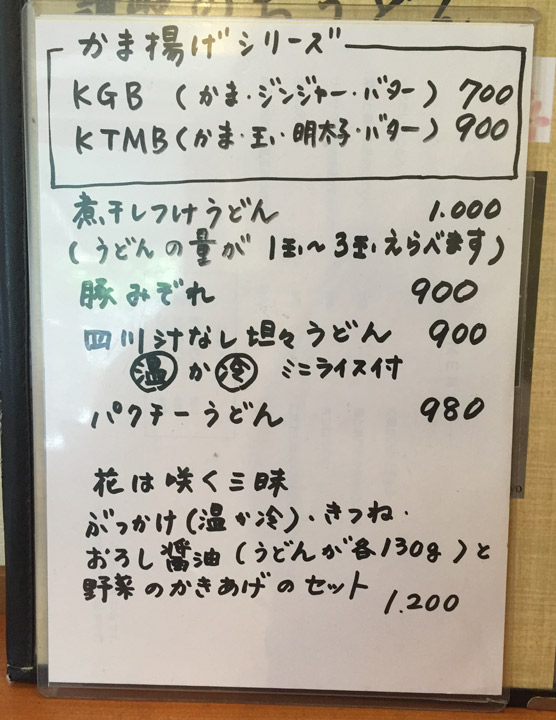 かま揚げシリーズ
KGB (かま・ジンジャー・バター) 700
KTMB (かま・玉・明太子・バター) 900
煮干しつけうどん 1.000
(うどんの量が 1玉〜3玉えらべます)
豚みぞれ 900
四川汁なし坦々うどん 900
温 か 冷 ミニライス付
パクチーうどん 980
花は咲く三昧
ぶっかけ(温か冷)・きつね・
おろし醤油(うどんが各130g)と
野菜のかきあげのセット
1.200